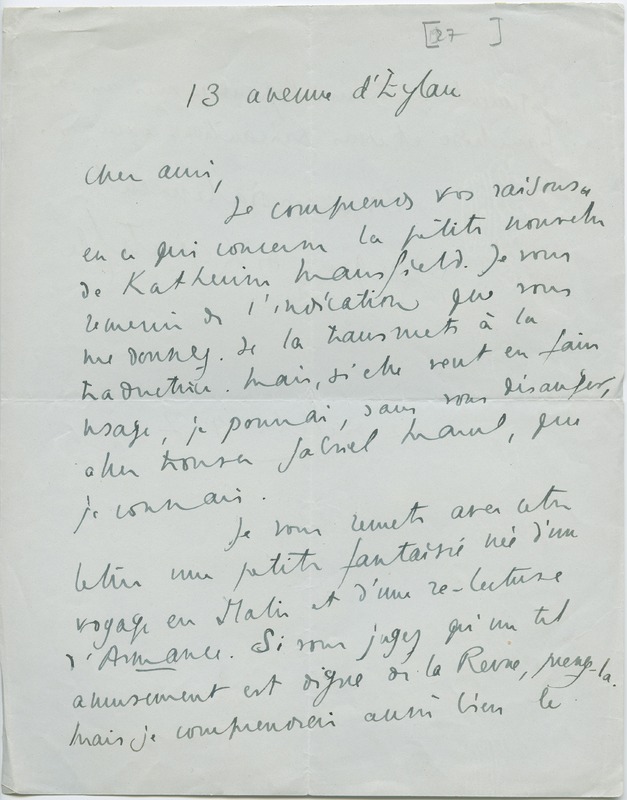 [27 ]
13 avenue d'Eylau
Cher ami,
Je comprends vos raisons
en ce qui concerne la petite nouvelle
de Katherine Mansfield. Je vous
remercie de l'indication que vous
me donnez. Je la transmets à la
traductrice. Mais, si elle veut en faire
usage, je pourrai, sans vous déranger,
aller trouver Gabriel Marcel, que
je connais.
Je vous remets avec cette
lettre une petite fantaisie née d'un
voyage en Italie et d'une re-lecture
d'Armance. Si vous jugez qu'un tel
amusement est digne de la Revue, prenez-la.
Mais je comprendrai aussi bien le